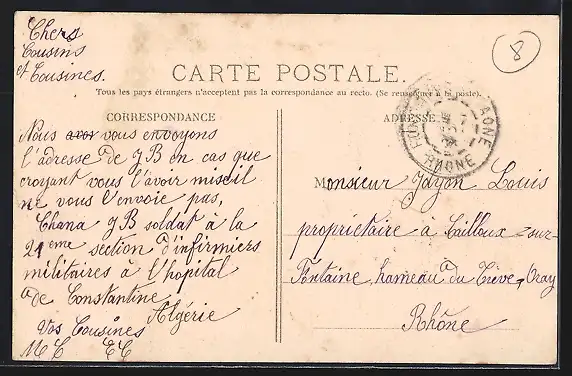 Chers
Cousins
et Cousines.
8
CARTE POSTALE.
Tous les pays étrangers n'acceptent pas la correspondance au recto. (Se renseigner à la poste).
CORRESPONDANCE
Nous avos vous envoyons
l'adresse de JB en cas que
croyant vous l'avoir mis il
ne vous l'envoie pas,
Chana JB soldat à la
21eme section d'infirmiers
militaires à l'hopital
de Constantine
Algérie
Vos Cousines
MC EC
ADRESSE
SAONE
RHONE
Monsieur Jayon Louis
propriétaire à Cailloux-sur-
Fontaine, hameau du Trève,
Rhône